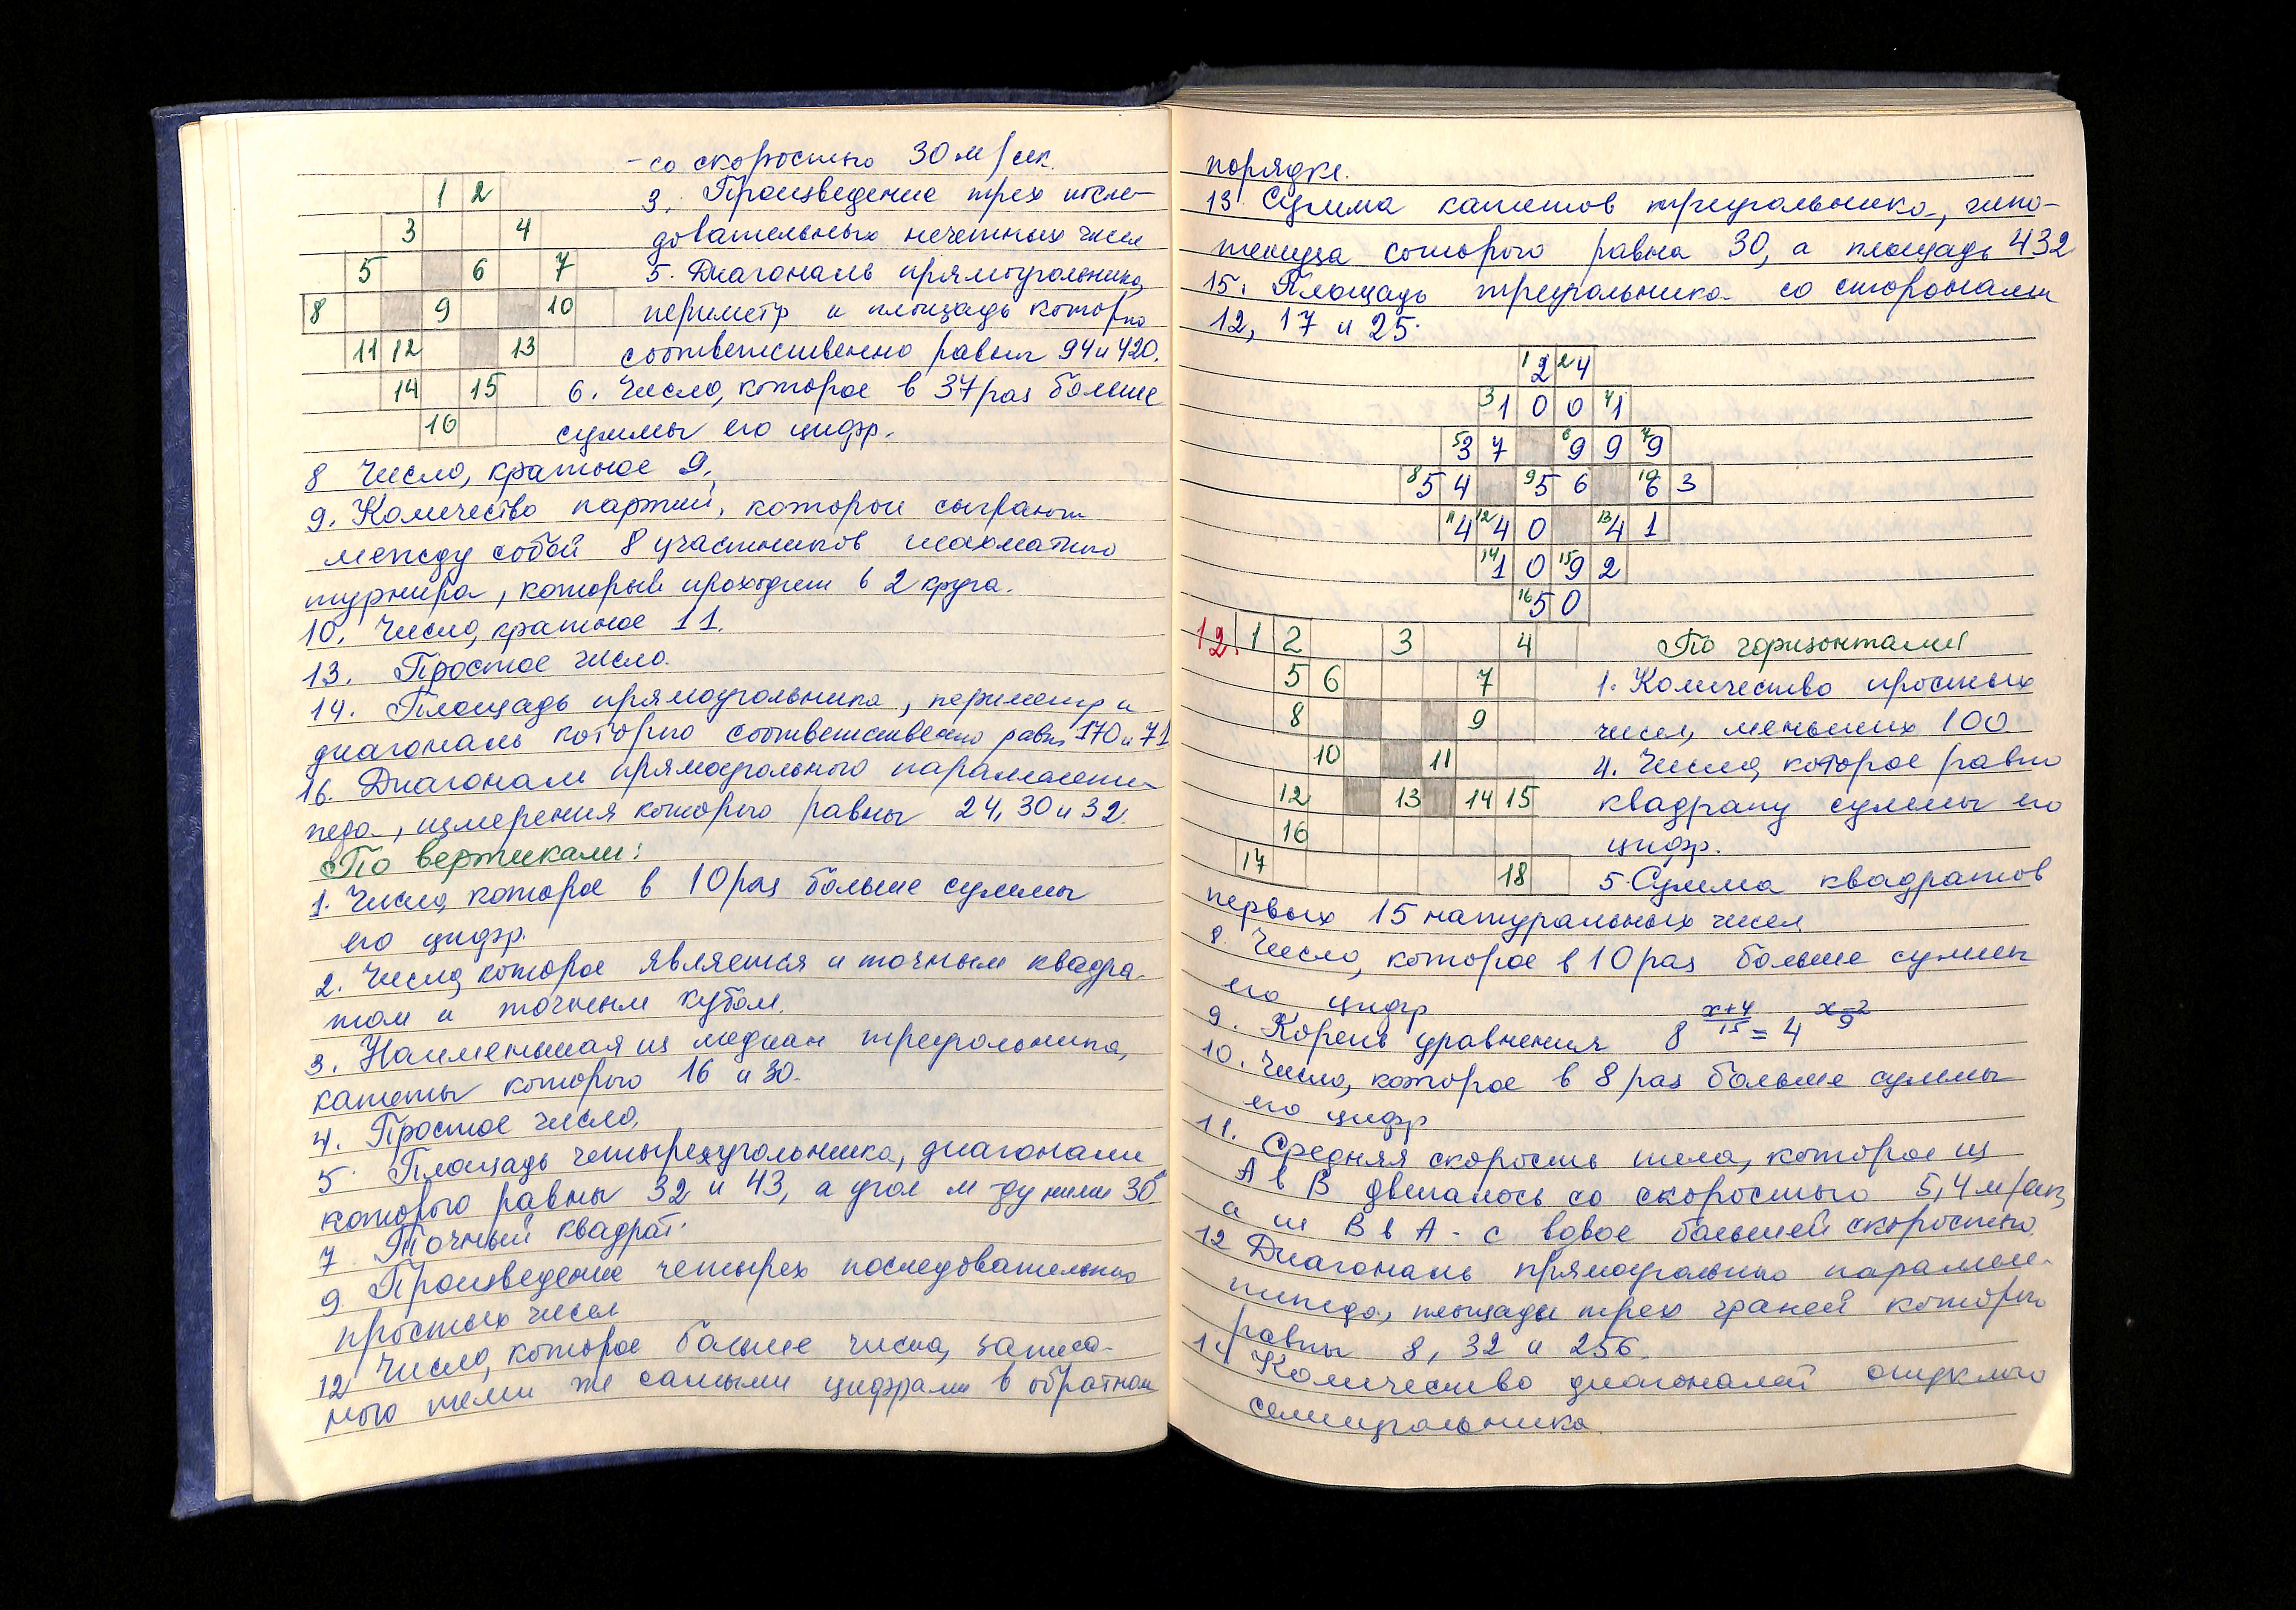 - со скоростью 30 м/сек.
1 2
3 4
5 6 7
8 9 10
11 12 13
14 15
16
3. Произведение трех после-
довательных нечетных чисел
5. Диагональ прямоугольника,
периметр и площадь которого
соответственно равны 94 и 420.
6. Число, которое в 37 раз больше
суммы его цифр.
8 Число, кратное 9.
9. Количество партий, которые сыграют
между собой 8 участников шахматного
турнира, который проходит в 2 круга.
10. Число, кратное 11.
13. Простое число.
14. Площадь прямоугольника, периметр и
диагональ которого соответственно равны 170 и 71
16. Диагональ прямоугольного параллелепи-
педа, измерения которого равны 24, 30 и 32.
По вертикали:
1. Число, которое в 10 раз больше суммы
его цифр.
2. Число, которое является и точным квадра-
том и точным кубом.
3. Наименьшая из медиан треугольника,
катеты которого 16 и 30.
4. Простое число.
5. Площадь четырехугольника, диагонали
которого равны 32 и 43, а угол м-ду ними 30°
7 Точный квадрат.
9. Произведение четырех последовательных
простых чисел
12 Число, которое больше числа, записан-
ного теми же самыми цифрами в обратном
порядке.
13 Сумма катетов треугольника, гипо-
тенуза которого равна 30, а площадь 432
15. Площадь треугольника со сторонами
12, 17 и 25.
1 2 2 4
3 1 0 0 4 1
5 3 7 6 9 9 7 9
8 5 4 9 5 6 10 6 3
11 4 12 4 0 13 4 1
14 1 0 15 9 2
16 5 0
12. 1 2 3 4
5 6 7
8 9
10 11
12 13 14 15
16
17 18
По горизонтали
1. Количество простых
чисел, меньших 100.
4. Число, которое равно
квадрату суммы его
цифр.
5. Сумма квадратов
первых 15 натуральных чисел
8. Число, которое в 10 раз больше суммы
его цифр
9. Корень уравнения 8^{\frac{x+4}{15}} = 4^{\frac{x-2}{9}}
10. Число, которое в 8 раз больше суммы
его цифр
11. Средняя скорость тела, которое из
А в В двигалось со скоростью 5,4 м/сек,
а из В в А - с вдвое большей скоростью.
12 Диагональ прямоугольного параллеле-
пипеда, площади трех граней которого
равны 8, 32 и 256.
14 Количество диагоналей выпуклого
семиугольника.